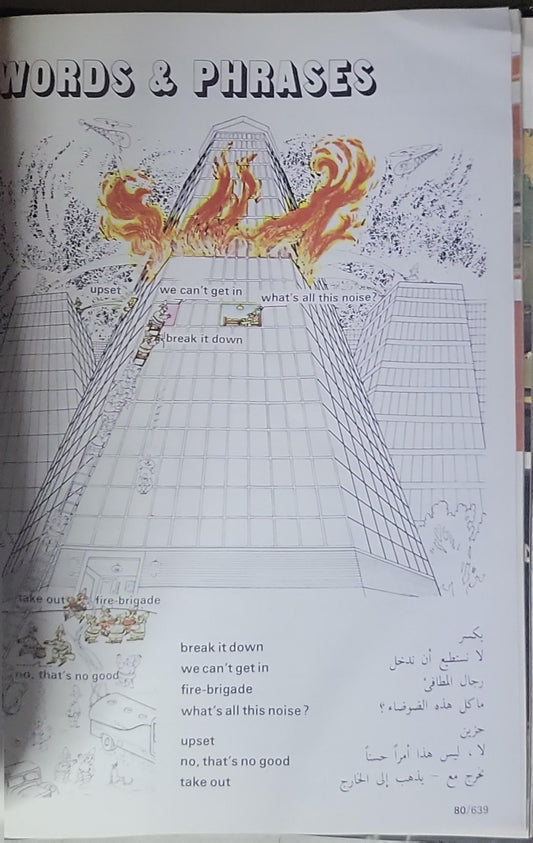 WORDS & PHRASES
upset
we can't get in
what's all this noise?
break it down
take out
fire-brigade
no, that's no good
break it down
we can't get in
fire-brigade
what's all this noise?
upset
no, that's no good
take out
يكسر
لا نستطيع أن ندخل
رجال المطافئ
ما كل هذه الضوضاء؟
حزين
لا، ليس هذا أمراً حسناً
تخرج مع - يذهب إلى الخارج
80/639